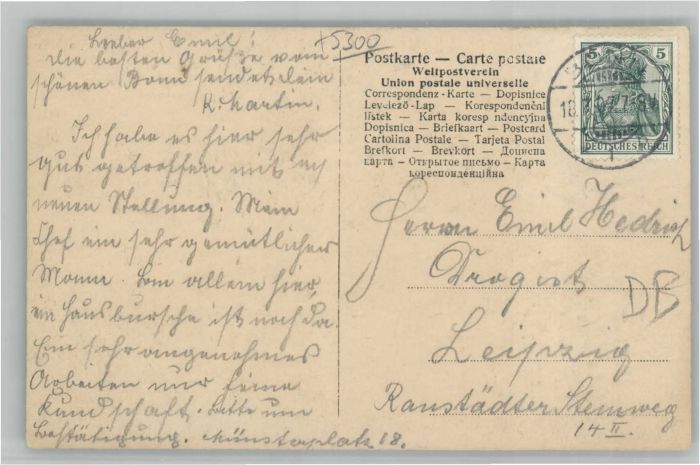 Lieber Emil!
die besten Grüße vom
schönen Bonn sendet dein
K. Martin.
Ich habe es hier sehr
gut getroffen mit
neuen Stellung. Mein
Chef ein sehr gemütlicher
Mann. Bin allein hier,
ein Hausbursche ist noch da.
Ein sehr angenehmes
Arbeiten nur feine
Kundschaft. Bitte um
Bestätigung. Münsterplatz 18.
+5300
Postkarte — Carte postale
Weltpostverein
Union postale universelle
Correspondenz-Karte — Dopisnice
Levelező-Lap — Korespondenční
lístek — Karta koresp ndencyjna
Dopisnica — Briefkaart — Postcard
Cartolina Postale — Tarjeta Postal
Brefkort — Brevkort — Дописна
карта — Открытое письмо — Карта
кореспонденційна
5 5
DEUTSCHES REICH
Herrn Emil Hedrich
Drogist
DB
Leipzig
Ranstädter Steinweg
14 II.